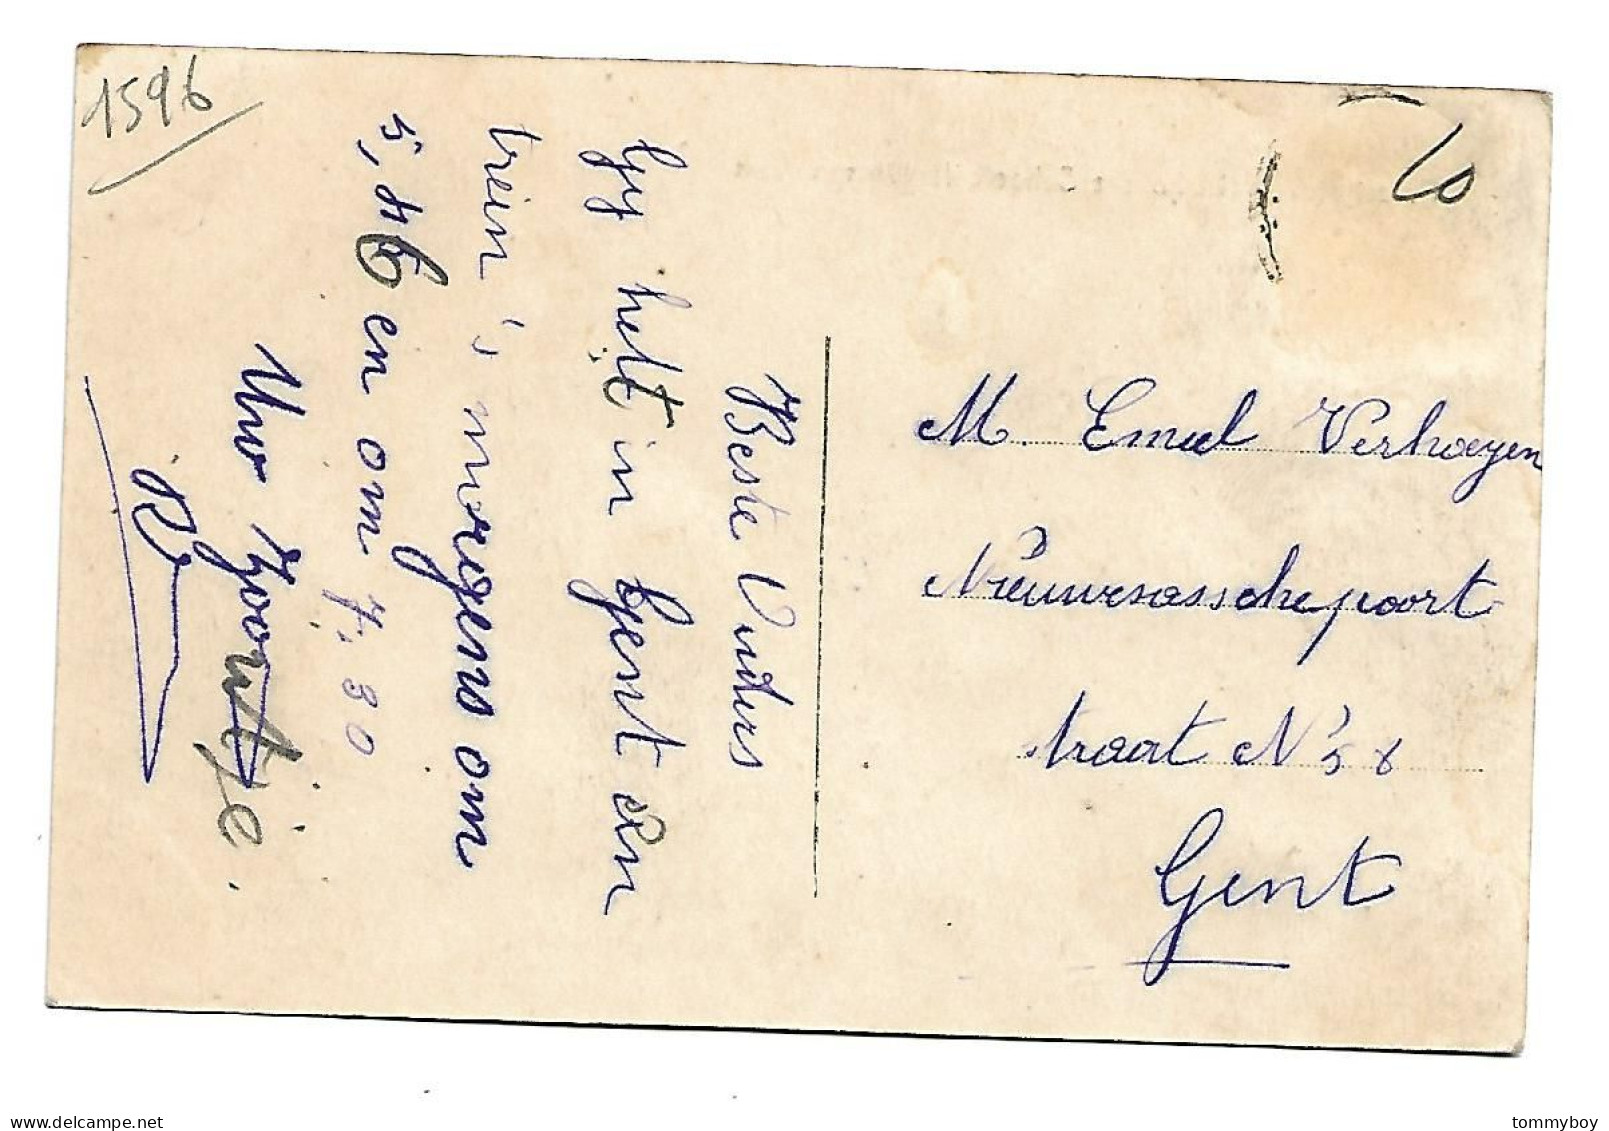 1596
10
Beste Ouders
Gij hebt in Gent een
trein 's morgens om
5,46 en om 7.30
Uw Zoontje.
M. Emiel Verhaegen
Nieuwvaasschepoort
straat N° 58
Gent
delcampe.net
tommyboy